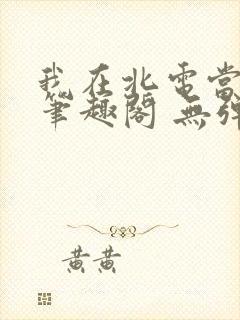 我在北電當
筆趣閣 無彈
黃黃